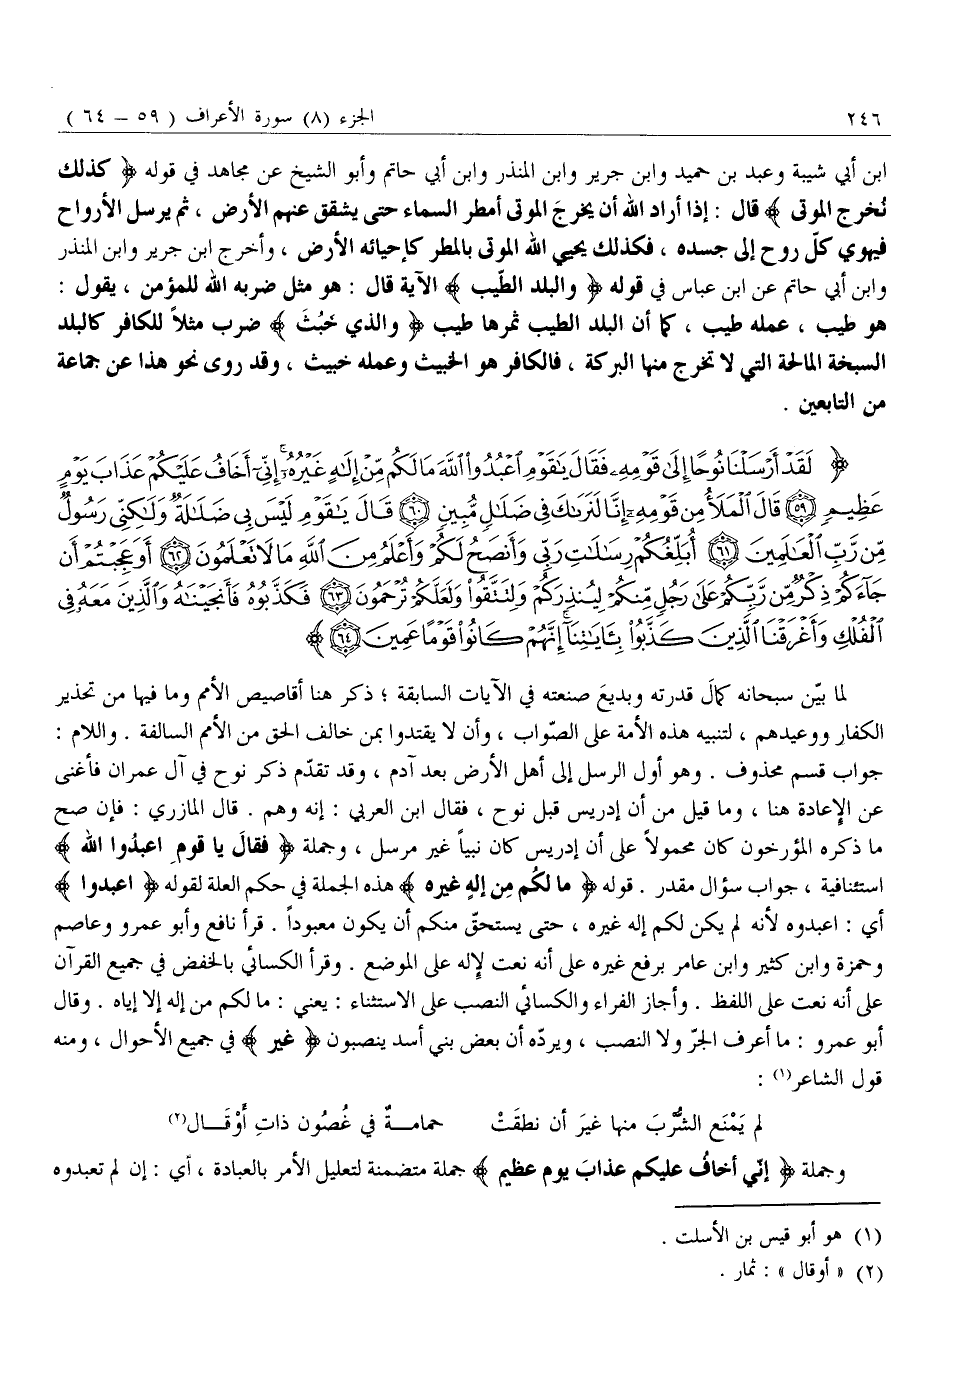 ٢٤٦ الجزء (٨) سورة الأعراف ( ٥٩ – ٦٤ )
ابن أبي شيبة وعبد بن حميد وابن جرير وابن المنذر وابن أبي حاتم وأبو الشيخ عن مجاهد في قوله ﴿ كذلك
نُخرج الموتى ﴾ قال : إذا أراد الله أن يخرجَ الموتى أمطر السماء حتى يشقق عنهم الأرض ، ثم يرسل الأرواح
فيهوي كلّ روح إلى جسده ، فكذلك يحيي الله الموتى بالمطر كإحيائه الأرض ، وأخرج ابن جرير وابن المنذر
وابن أبي حاتم عن ابن عباس في قوله ﴿ والبلد الطّيب ﴾ الآية قال : هو مثل ضربه الله للمؤمن ، يقول :
هو طيب ، عمله طيب ، كما أن البلد الطيب ثمرها طيب ﴿ والذي خَبُثَ ﴾ ضرب مثلاً للكافر كالبلد
السبخة المالحة التي لا تخرج منها البركة ، فالكافر هو الخبيث وعمله خبيث ، وقد روى نحو هذا عن جماعة
من التابعين .
﴿ لَقَدْ أَرْسَلْنَا نُوحًا إِلَىٰ قَوْمِهِۦ فَقَالَ يَٰقَوْمِ ٱعْبُدُوا۟ ٱللَّهَ مَا لَكُم مِّنْ إِلَٰهٍ غَيْرُهُۥٓ ۚ إِنِّىٓ أَخَافُ عَلَيْكُمْ عَذَابَ يَوْمٍ
عَظِيمٍ ٥٩ قَالَ ٱلْمَلَأُ مِن قَوْمِهِۦٓ إِنَّا لَنَرَىٰكَ فِى ضَلَٰلٍ مُّبِينٍ ٦٠ قَالَ يَٰقَوْمِ لَيْسَ بِى ضَلَٰلَةٌ وَلَٰكِنِّى رَسُولٌ
مِّن رَّبِّ ٱلْعَٰلَمِينَ ٦١ أُبَلِّغُكُمْ رِسَٰلَٰتِ رَبِّى وَأَنصَحُ لَكُمْ وَأَعْلَمُ مِنَ ٱللَّهِ مَا لَا تَعْلَمُونَ ٦٢ أَوَعَجِبْتُمْ أَن
جَآءَكُمْ ذِكْرٌ مِّن رَّبِّكُمْ عَلَىٰ رَجُلٍ مِّنكُمْ لِيُنذِرَكُمْ وَلِتَتَّقُوا۟ وَلَعَلَّكُمْ تُرْحَمُونَ ٦٣ فَكَذَّبُوهُ فَأَنجَيْنَٰهُ وَٱلَّذِينَ مَعَهُۥ فِى
ٱلْفُلْكِ وَأَغْرَقْنَا ٱلَّذِينَ كَذَّبُوا۟ بِـَٔايَٰتِنَآ ۚ إِنَّهُمْ كَانُوا۟ قَوْمًا عَمِينَ ٦٤ ﴾
لما بيّن سبحانه كمالَ قدرته وبديعَ صنعته في الآيات السابقة ؛ ذكر هنا أقاصيص الأمم وما فيها من تحذير
الكفار ووعيدهم ، لتنبيه هذه الأمة على الصّواب ، وأن لا يقتدوا بمن خالف الحق من الأمم السالفة . واللام :
جواب قسم محذوف . وهو أول الرسل إلى أهل الأرض بعد آدم ، وقد تقدّم ذكر نوح في آل عمران فأغنى
عن الإعادة هنا ، وما قيل من أن إدريس قبل نوح ، فقال ابن العربي : إنه وهم . قال المازري : فإن صح
ما ذكره المؤرخون كان محمولاً على أن إدريس كان نبياً غير مرسل ، وجملة ﴿ فقالَ يا قومِ اعبدُوا الله ﴾
استئنافية ، جواب سؤال مقدر . قوله ﴿ ما لكُم مِن إلهٍ غيره ﴾ هذه الجملة في حكم العلة لقوله ﴿ اعبدوا ﴾
أي : اعبدوه لأنه لم يكن لكم إله غيره ، حتى يستحقّ منكم أن يكون معبوداً . قرأ نافع وأبو عمرو وعاصم
وحمزة وابن كثير وابن عامر برفع غيره على أنه نعت لإله على الموضع . وقرأ الكسائي بالخفض في جميع القرآن
على أنه نعت على اللفظ . وأجاز الفراء والكسائي النصب على الاستثناء : يعني : ما لكم من إله إلا إياه . وقال
أبو عمرو : ما أعرف الجرّ ولا النصب ، ويردّه أن بعض بني أسد ينصبون ﴿ غير ﴾ في جميع الأحوال ، ومنه
قول الشاعر(١) :
لم يَمْنَع الشُّرْبَ منها غيرَ أن نطقَتْ حمامــةٌ في غُصُون ذاتِ أَوْقَــال(٢)
وجملة ﴿ إنّي أخافُ عليكم عذابَ يوم عظيم ﴾ جملة متضمنة لتعليل الأمر بالعبادة ، أي : إن لم تعبدوه
(١) هو أبو قيس بن الأسلت .
(٢) « أوقال » : ثمار .